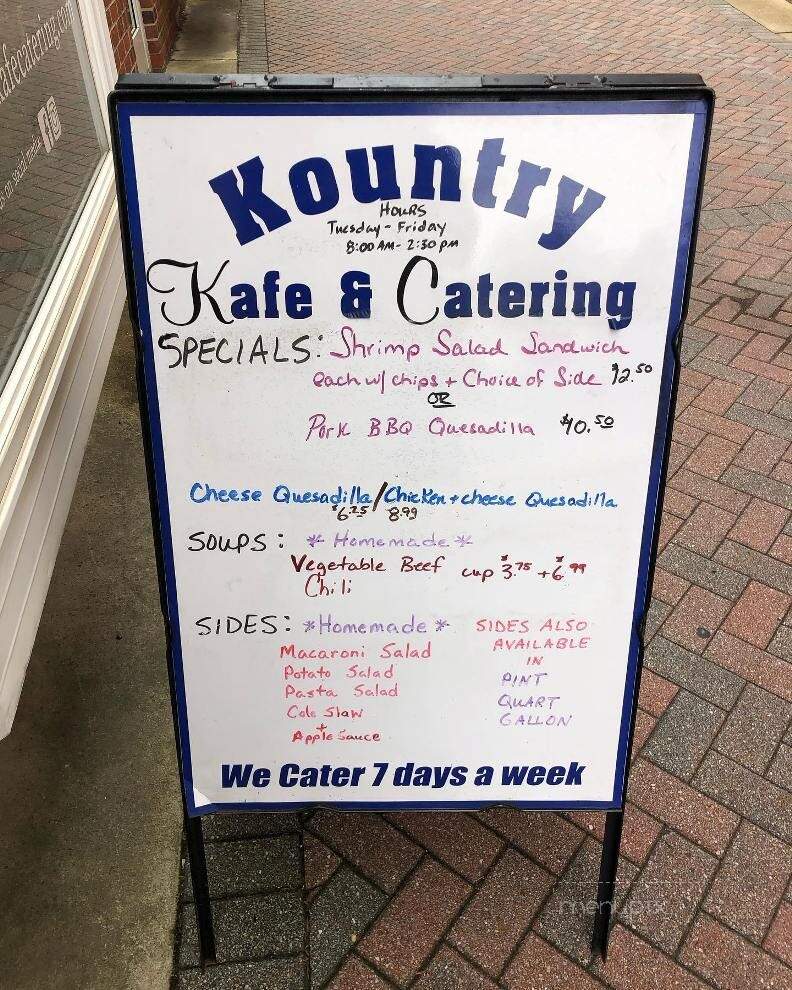 afecatering.com
on social media
Kountry
HOURS
Tuesday - Friday
8:00 AM - 2:30 PM
Kafe & Catering
SPECIALS: Shrimp Salad Sandwich
each w/ chips + Choice of Side $12.50
OR
Pork BBQ Quesadilla $10.50
Cheese Quesadilla / Chicken + cheese Quesadilla
$6.25 8.99
SOUPS: * Homemade *
Vegetable Beef cup $3.75 + $6.99
Chili
SIDES: * Homemade *
Macaroni Salad
Potato Salad
Pasta Salad
Cole Slaw
+
Apple Sauce
SIDES ALSO
AVAILABLE
IN
PINT
QUART
GALLON
We Cater 7 days a week
menupix